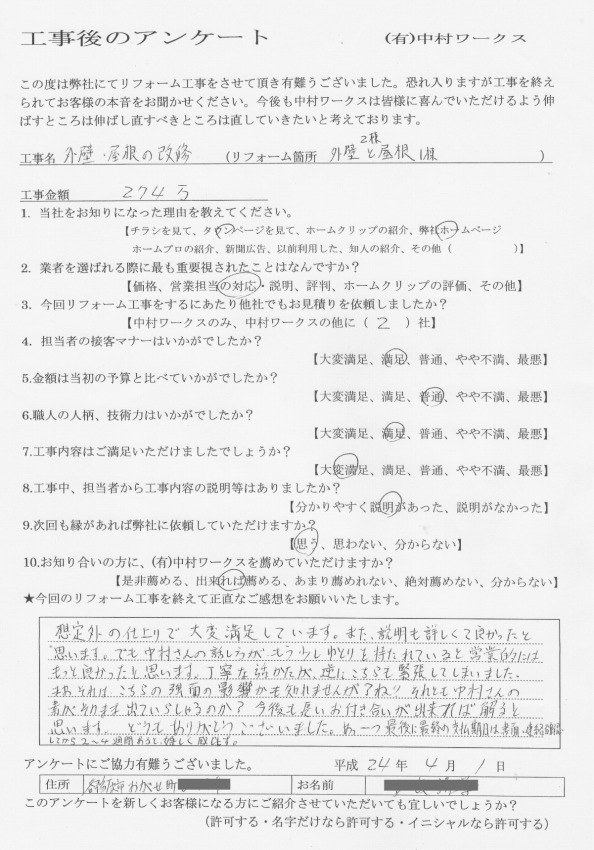 工事後のアンケート (有)中村ワークス
この度は弊社にてリフォーム工事をさせて頂き有難うございました。恐れ入りますが工事を終え
られてお客様の本音をお聞かせください。今後も中村ワークスは皆様に喜んでいただけるよう伸
ばすところは伸ばし直すべきところは直していきたいと考えております。
工事名 外壁・屋根の改修 (リフォーム箇所 外壁2棟と屋根1棟 )
工事金額 274万
1. 当社をお知りになった理由を教えてください。
【チラシを見て、タウンページを見て、ホームクリップの紹介、弊社ホームページ
ホームプロの紹介、新聞広告、以前利用した、知人の紹介、その他( )】
2. 業者を選ばれる際に最も重要視されたことはなんですか?
【価格、営業担当の対応・説明、評判、ホームクリップの評価、その他】
3. 今回リフォーム工事をするにあたり他社でもお見積りを依頼しましたか?
【中村ワークスのみ、中村ワークスの他に( 2 )社】
4. 担当者の接客マナーはいかがでしたか?
【大変満足、満足、普通、やや不満、最悪】
5.金額は当初の予算と比べていかがでしたか?
【大変満足、満足、普通、やや不満、最悪】
6.職人の人柄、技術力はいかがでしたか?
【大変満足、満足、普通、やや不満、最悪】
7.工事内容はご満足いただけましたでしょうか?
【大変満足、満足、普通、やや不満、最悪】
8.工事中、担当者から工事内容の説明等はありましたか?
【分かりやすく説明があった、説明がなかった】
9.次回も縁があれば弊社に依頼していただけますか?
【思う、思わない、分からない】
10.お知り合いの方に、(有)中村ワークスを薦めていただけますか?
【是非薦める、出来れば薦める、あまり薦めれない、絶対薦めない、分からない】
★今回のリフォーム工事を終えて正直なご感想をお願いいたします。
想定外の仕上りで大変満足しています。また、説明も詳しくて良かったと
思います。でも中村さんの話し方が、もう少しゆとりを持たれていると営業的には
もっと良かったと思います。丁寧な話しかたが、逆にこちらも緊張してしまいました。
まあそれは、こちらの強面の影響かも知れませんがネ!! それとも中村さんの
素がそのまま出ていらしゃるのか? 今後も長いお付き合いが出来れば解ると
思います。どうもありがとうございました。あ、一つ最後に最終の支払期日は書面、連絡確認
してから2〜4週間あると嬉しく
アンケートにご協力有難うございました。 平成 24年 4月 1日
住所 各務原市おがせ町 お名前
このアンケートを新しくお客様になる方にご紹介させていただいても宜しいでしょうか?
(許可する・名字だけなら許可する・イニシャルなら許可する)